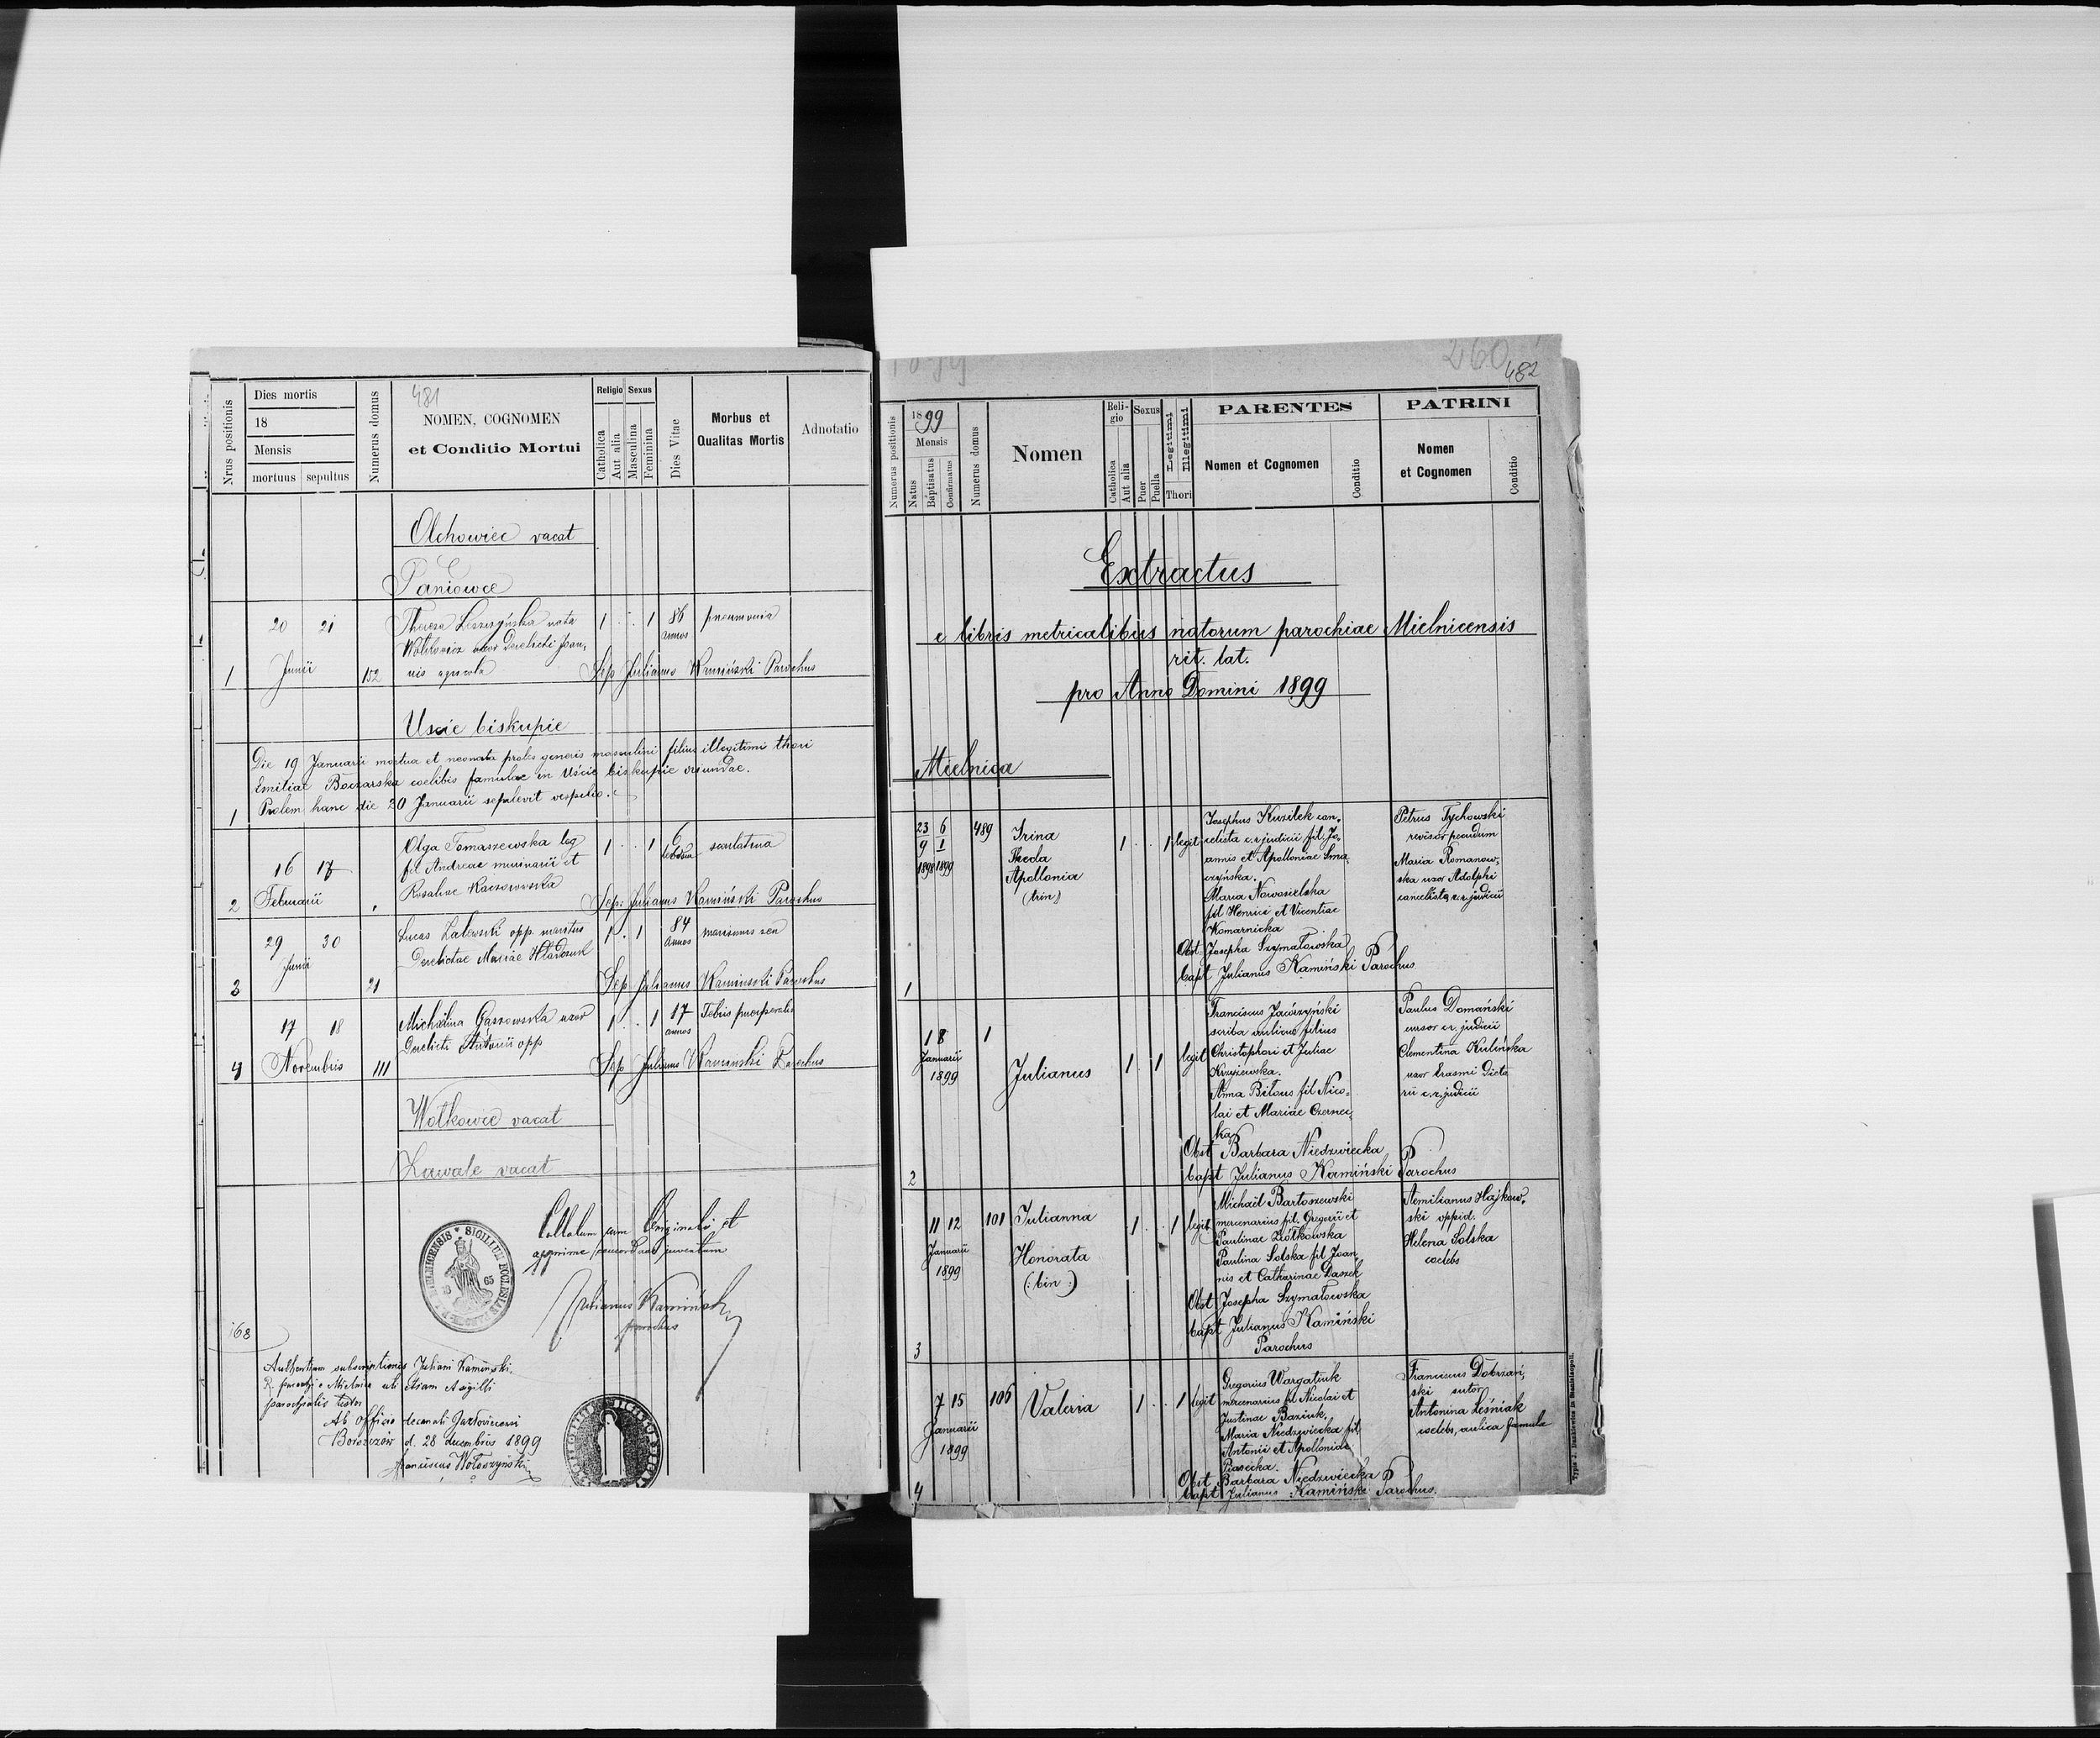 481
Nrus positionis
Dies mortis
18
Mensis
mortuus sepultus
Numerus domus
NOMEN, COGNOMEN
et Conditio Mortui
Religio
Catholica
Aut alia
Sexus
Masculina
Feminina
Dies Vitae
Morbus et
Qualitas Mortis
Adnotatio
Olchowiec vacat
Paniowce
1
20 21
Junii
152
Theresa Leszczyńska nata
uxor Derelicti Joan,
nis agricola
1 . . 1
86
annos
pneumonia
Sep Julianus Kamiński Parochus
Uscie biskupie
1
Die 19 Januarii mortua et neonata proles generis masculini filius illegitimi thori
Emiliae Boczarska coelibis famulae in Uście biskupie oriundae.
Prolem hanc die 20 Januarii sepelevit vespilio.
2
16 17
Februarii
Olga Tomaszewska leg
fil Andreae murinarii et
Rosaliae Kaczorowska
1 . . 1
6
scarlatina
Sep: Julianus Kamiński Parochus
3
29 30
Junii
21
Lucas Zalewski opp. maritus
Derelictae Mariae
1 . 1
84
annos
marasmus sen
Sep Julianus Kamiński Parochus
4
17 18
Novembris
111
Michalina Gąszowska uxor
Derelicti Antonii opp
1 . . 1
17
annos
Febris puerperalis
Sep Julianus Kamiński Parochus
Wołkowce vacat
Zawale vacat
Collatum cum Originali et
apprime concordans inventum
Julianus Kamiński
parochus
168
Authenticam subscriptionis Juliani Kamiński
R. parochi e Mielnica uti etiam et sigilli
parochialis testor
Ab officio decanali Jazłoviecensi
Borszczów d. 28 decembris 1899
Franciscus Wołoszyński
260
482
Numerus positionis
1899
Mensis
Natus
Baptisatus
Confirmatus
Numerus domus
Nomen
Religio
Catholica
Aut alia
Sexus
Puer
Puella
Legitimi
Illegitimi
Thori
PARENTES
Nomen et Cognomen
Conditio
PATRINI
Nomen
et Cognomen
Conditio
Extractus
e libris metricalibus natorum parochiae Mielnicensis
rit. lat.
pro Anno Domini 1899
Mielnica
1
23 6
9 1
1898 1899
489
Irina
Theda
Apollonia
(trin)
1 . . 1 legit
Josephus Kuzilek can,
celista c.r judicii fil. Jo,
annis et Apolloniae Sma,
czyńska.
Maria Nowosielska
fil Henrici et Vicentiae
Komarnicka
Petrus Tychowski
revisor pecudum
Maria Romanow,
ska uxor Adolphi
cancelista c.r. judicii
Obst Josepha Szymałowska
bapt Julianus Kamiński Parochus
2
1 8
Januarii
1899
1
Julianus
1 . 1 legit
Franciscus Jaczyński
scriba aulicus filius
Christophori et Juliae
Krzyżewska.
Anna Biłous fil Nico,
lai et Mariae Czernec,
ka
Paulus Domański
cursor c.r. judicii
Clementina Kulińska
uxor Erasmi Dieta
rii c.r. judicii
Obst Barbara Niedzwiecka
bapt Julianus Kamiński Parochus
3
11 12
Januarii
1899
101
Julianna
Honorata
(: bin :)
1 . . 1 legit
Michaël Bartoszewski
mercenarius fil. Gregorii et
Paulinae Ziółkowska
Paulina Solska fil Joan
nis et Catharinae Daszek
Aemilianus Hajkow,
ski oppid.
Helena Solska
coelebs
Obst Josepha Szymałowska
bapt Julianus Kamiński
Parochus
4
7 15
Januarii
1899
106
Valeria
1 . . 1 legit
Gregorius Wargatiuk
mercenarius fil Nicolai et
Justinae Baziuk.
Maria Niedzwiecka fil
Antonii et Apolloniae
Piasecka.
Franciscus Dobrzań,
ski sutor
Antonina Leśniak
coelebs, aulica famula
Obst Barbara Niedzwiecka
bapt Julianus Kamiński Parochus.
Typis J. Dankiewicz in Stanislaopoli.